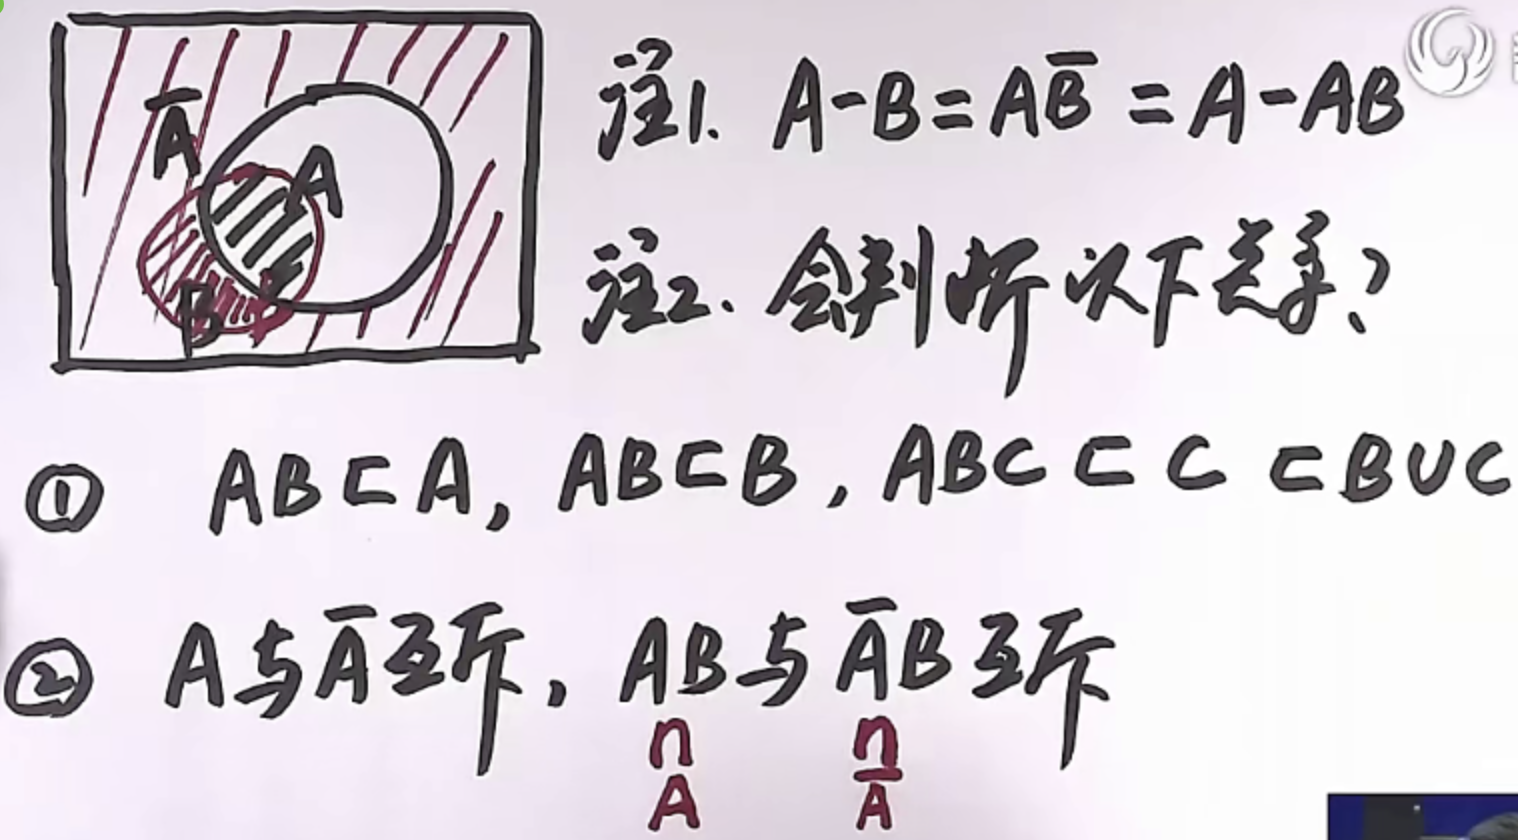 Ā
A
B
注1. A-B=AB̄=A-AB
注2. 会判断以下关系?
① AB⊂A, AB⊂B, ABC⊂C⊂B∪C
② A与Ā互斥, AB与ĀB互斥
∩ ∩
A Ā